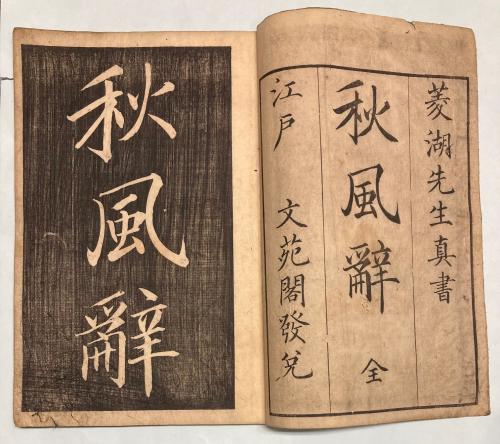 菱湖先生真書
秋風辭 全
江戸 文苑閣發兌
秋風辭